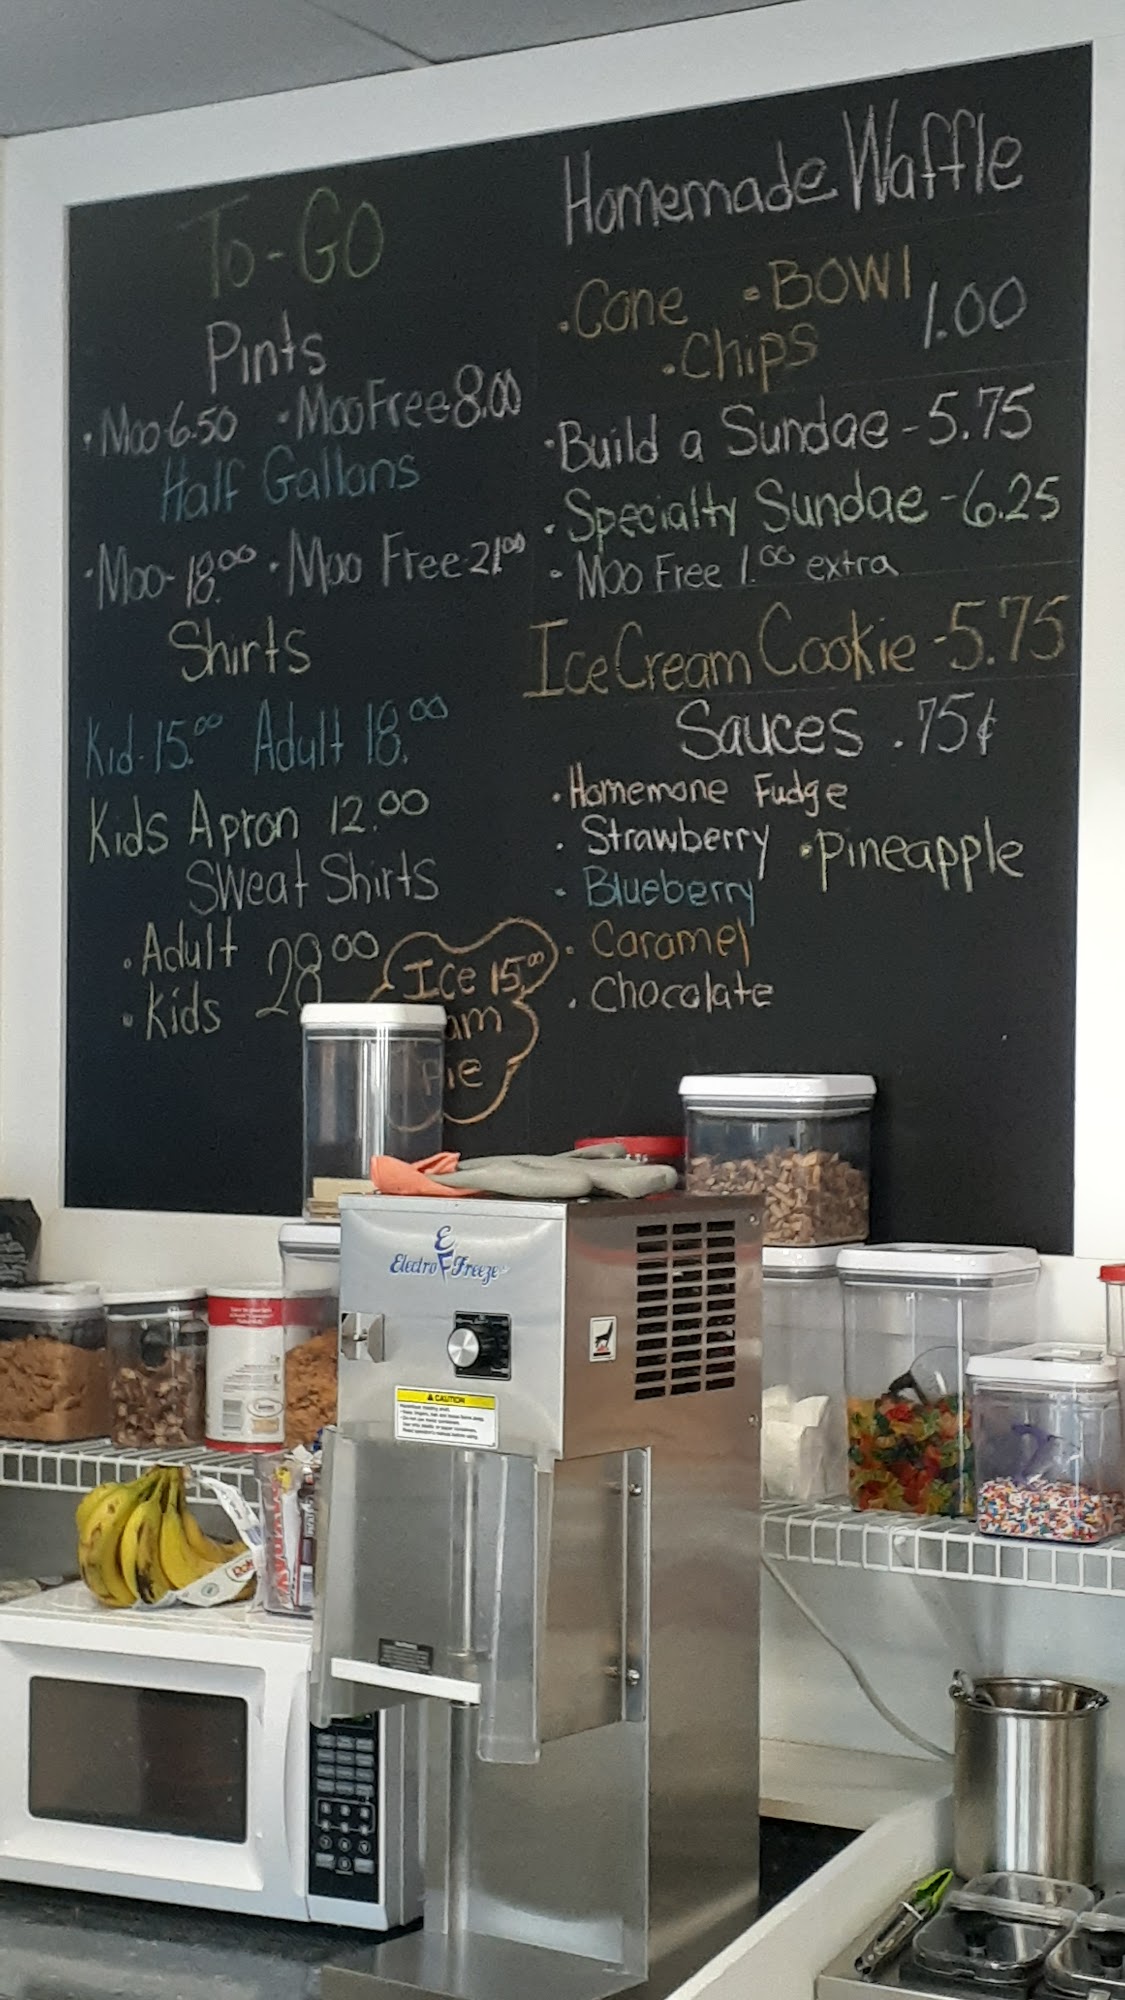 To-Go
Pints
• Moo 6.50 • Moo Free 8.00
Half Gallons
• Moo- 18.00 • Moo Free-21.00
Shirts
Kid-15.00 Adult 18.00
Kids Apron 12.00
Sweat Shirts
• Adult 28.00
• Kids 28
Ice 15.00
am
Pie
Homemade Waffle
• Cone • BOWl
• Chips 1.00
• Build a Sundae - 5.75
• Specialty Sundae - 6.25
• Moo Free 1.00 extra
Ice Cream Cookie - 5.75
Sauces .75¢
• Homemone Fudge
• Strawberry • Pineapple
• Blueberry
• Caramel
• Chocolate
Electro Freeze
CAUTION